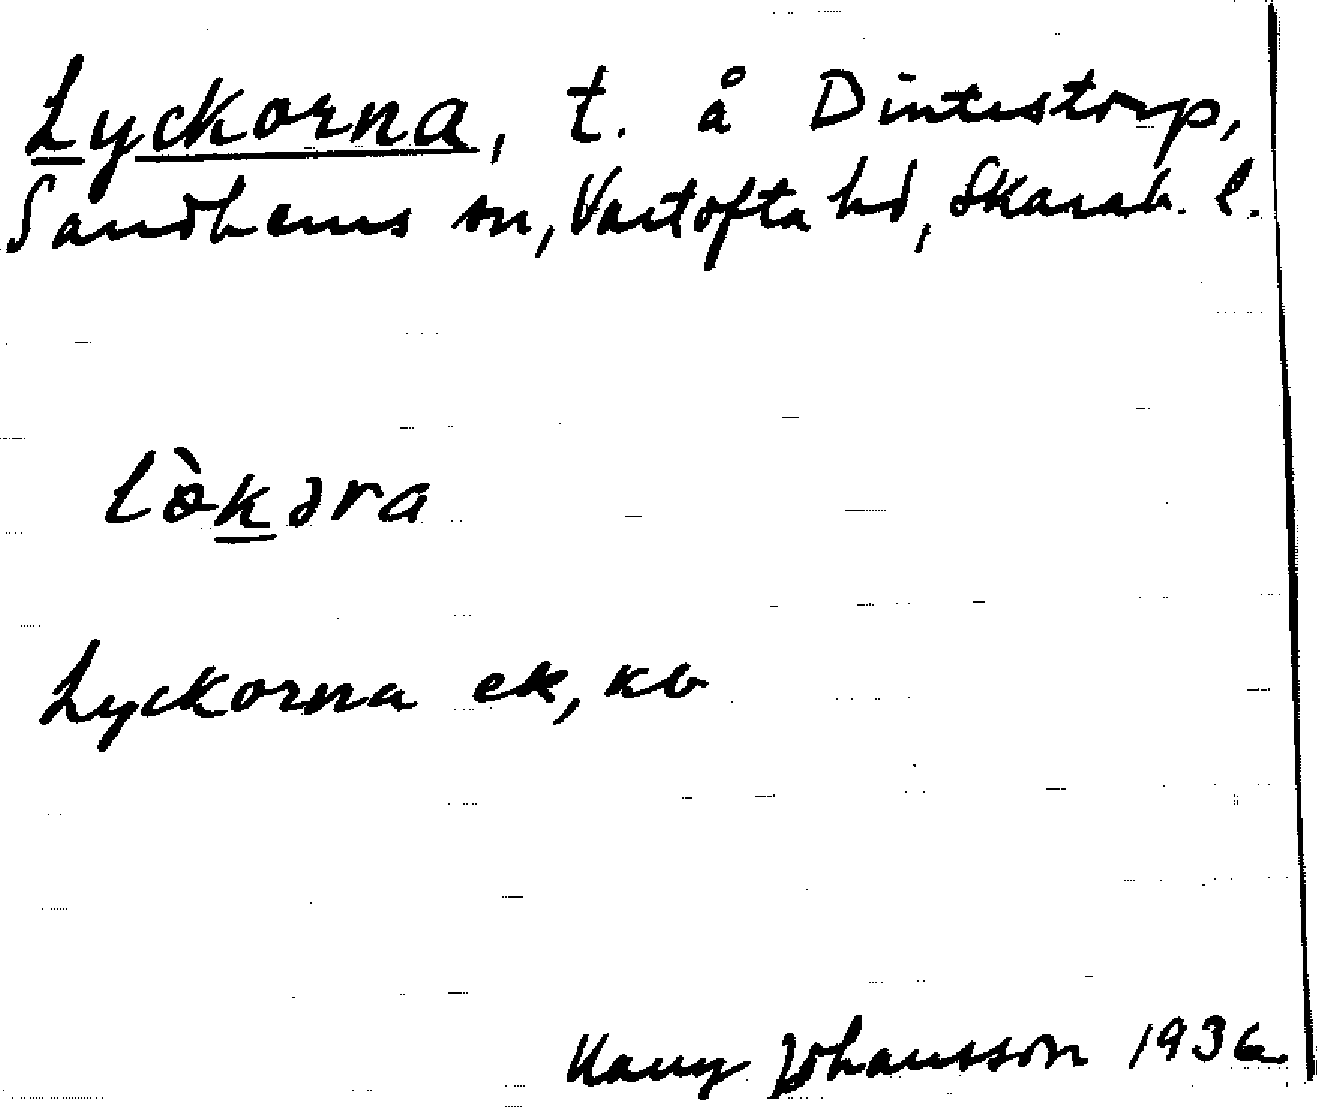 Lyckorna, t. å Dintestorp,
Sandhems sn, Vartofta hd, Skarab. l.
lòkəra
Lyckorna ek, kb
Johansson 1936